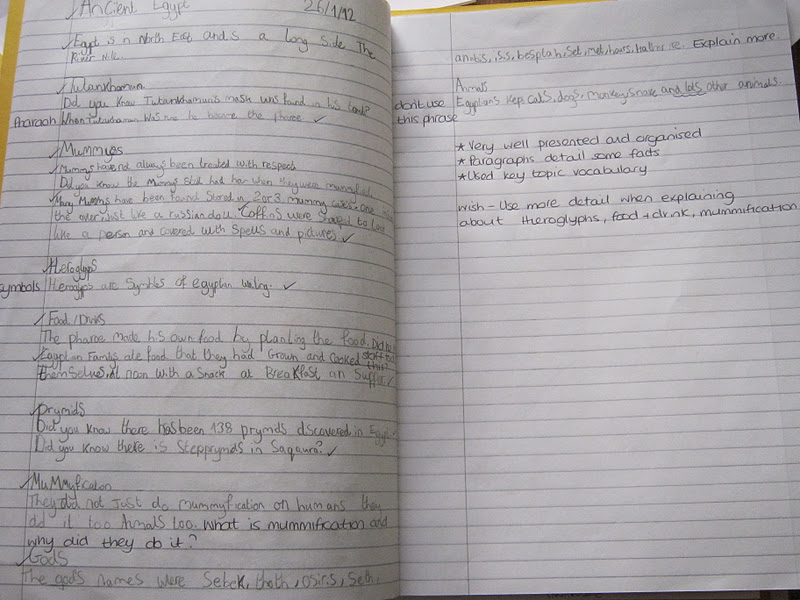 Ancient Egypt 26/1/12
Egypt is in North East and is a long side The
River Nile.
Tutankhamun
Did you know Tutankhamun's mask was found in his tomb?
Pharaoh When Tutankhamun was nine he became the pharoe ✓
Mummyes
Mummys have not always been treated with respect
Did you know the Mummys still had hair when they were mummified
Many Mummys have been found stored in 2 or 3 mummy cases one
the over just like a russian doll. Coffins were shaped to look
like a person and covered with spells and pictures. ✓
Heroglyps
symbols Heroglyps are Symbles of egyptian writing. ✓
Food/Drinks
The pharoe made his own food by planting the food.
Egyptian Familys ate food that they had Grown and cooked
themselves, at noon with a snack at Breakfast an supper. ✓
Prymids
Did you know there has been 138 prymids discovered in Egypt.
Did you know there is Stepprymds in Saqaura? ✓
MuMmyfication
They did not just do mummyfication on humans they
did it too Anmals too. What is mummification and
why did they do it?
Gods
The gods names were Sebek, thoth, osiris, Seth,
anubis, isis, Set, Explain more.
Anmals
don't use Egyptians kep cats, dogs, monkey, snake and lots other animals.
this phrase
* Very well presented and organised
* Paragraphs detail some facts
* Used key topic vocabulary
wish - Use more detail when explaining
about Hieroglyphs, food + drink, mummification.